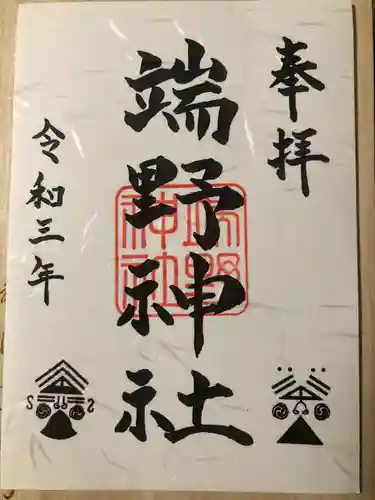 奉拝
端野神社
令和三年
端野
神社